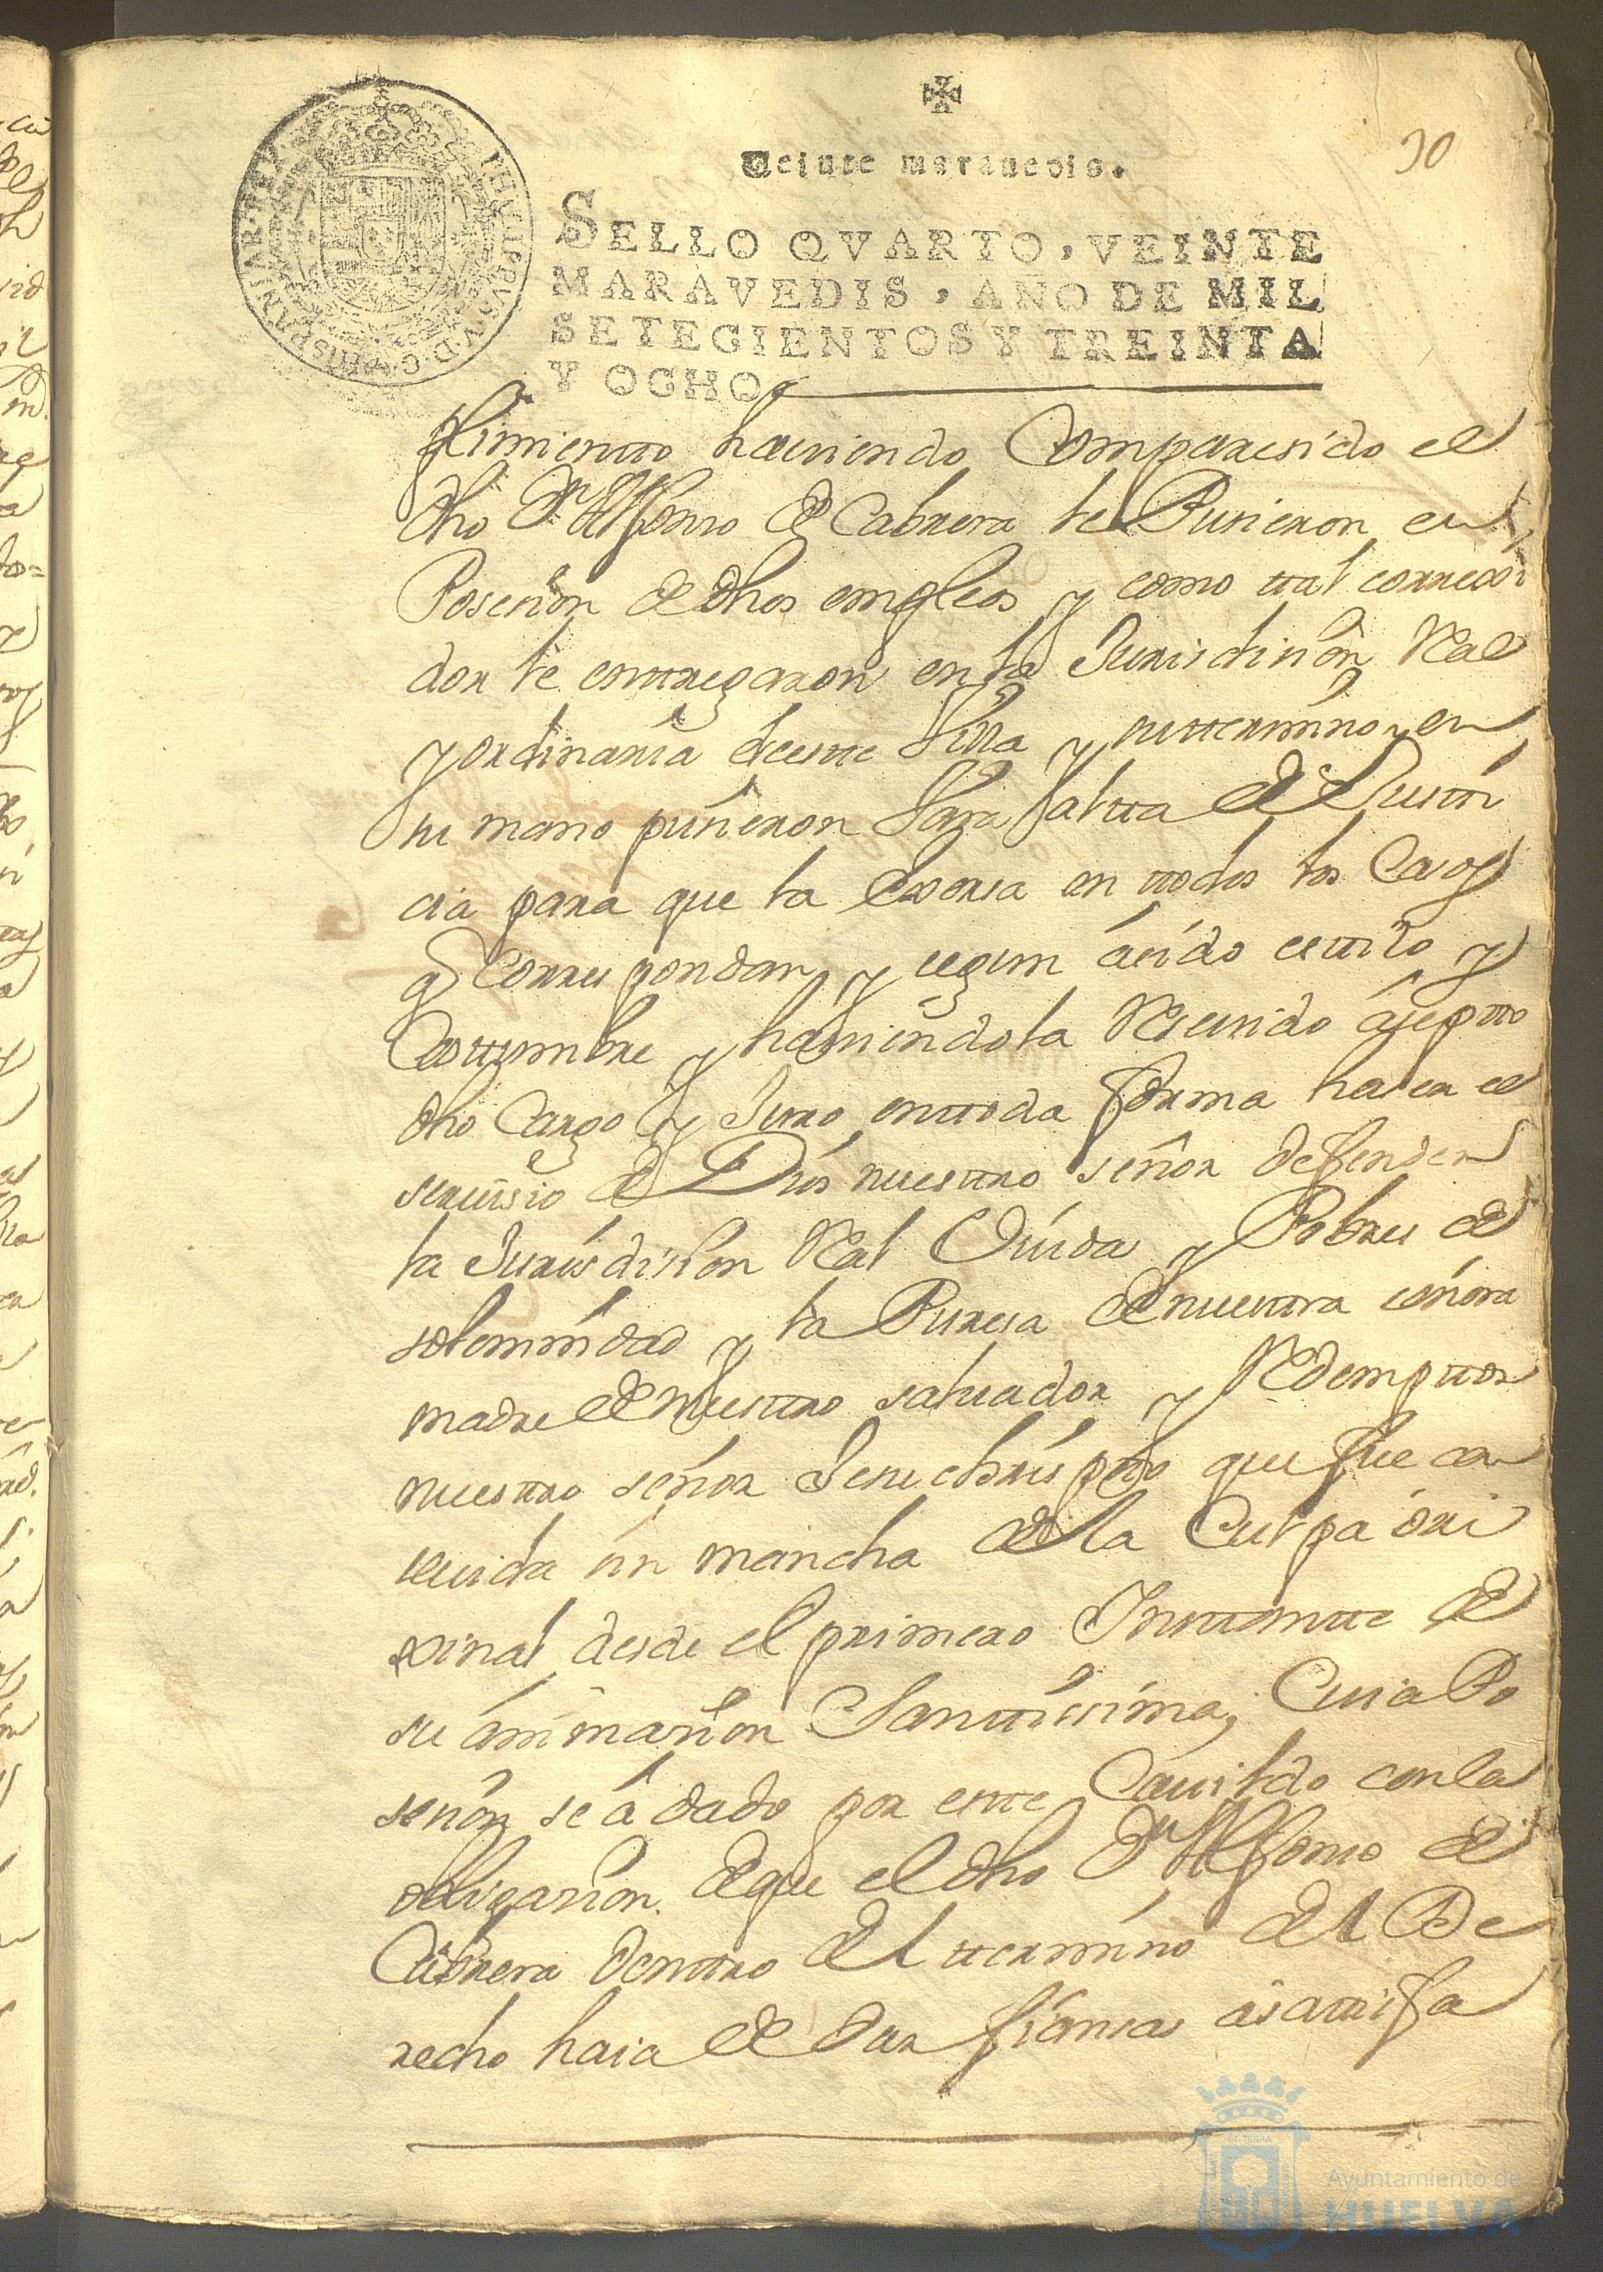 30
Veinte maravedis.
SELLO QVARTO, VEINTE
MARAVEDIS, AÑO DE MIL
SETECIENTOS Y TREINTA
Y OCHO.
PHILIPPVS·V·D·G·HISPANIAR·REX
plimientto haviendo Comparesido el
dho Dn Alfonso de Cabrera le Pusieron en
Posesion de dhos empleos y como ttal correxi
dor le enttregaron en la Jurisdision Real
y ordinaria de estte Villa y su ttermino y en
su mano pusieron Vara altta de Justti
cia para que la exersa en ttodos los Casos
q Correspondan y segun a sido esttilo y
Costtumbre y haviendola Resevido aseptto
dho Cargo y Juro en ttoda forma haser el
servisio de Dios nuesttro señor defender
la Jurisdision Real Viudas y Pobres de
solemnidad y la Puresa de nuesttra señora
madre de Nuesttro salvador y Redempttor
nuesttro señor Jesuchrispto que fue con
sevida sin mancha de la Culpa ori
xinal desde el primero Insttantte de
su animasion Santtissima, Cuia Po
sesion se a dado por estte Cavildo con la
obligasion de que el dho Dn Alfonso de
Cabrera denttro del ttermino del De
recho haia de dar fiansas a sattisfa
Ayuntamiento de
HUELVA